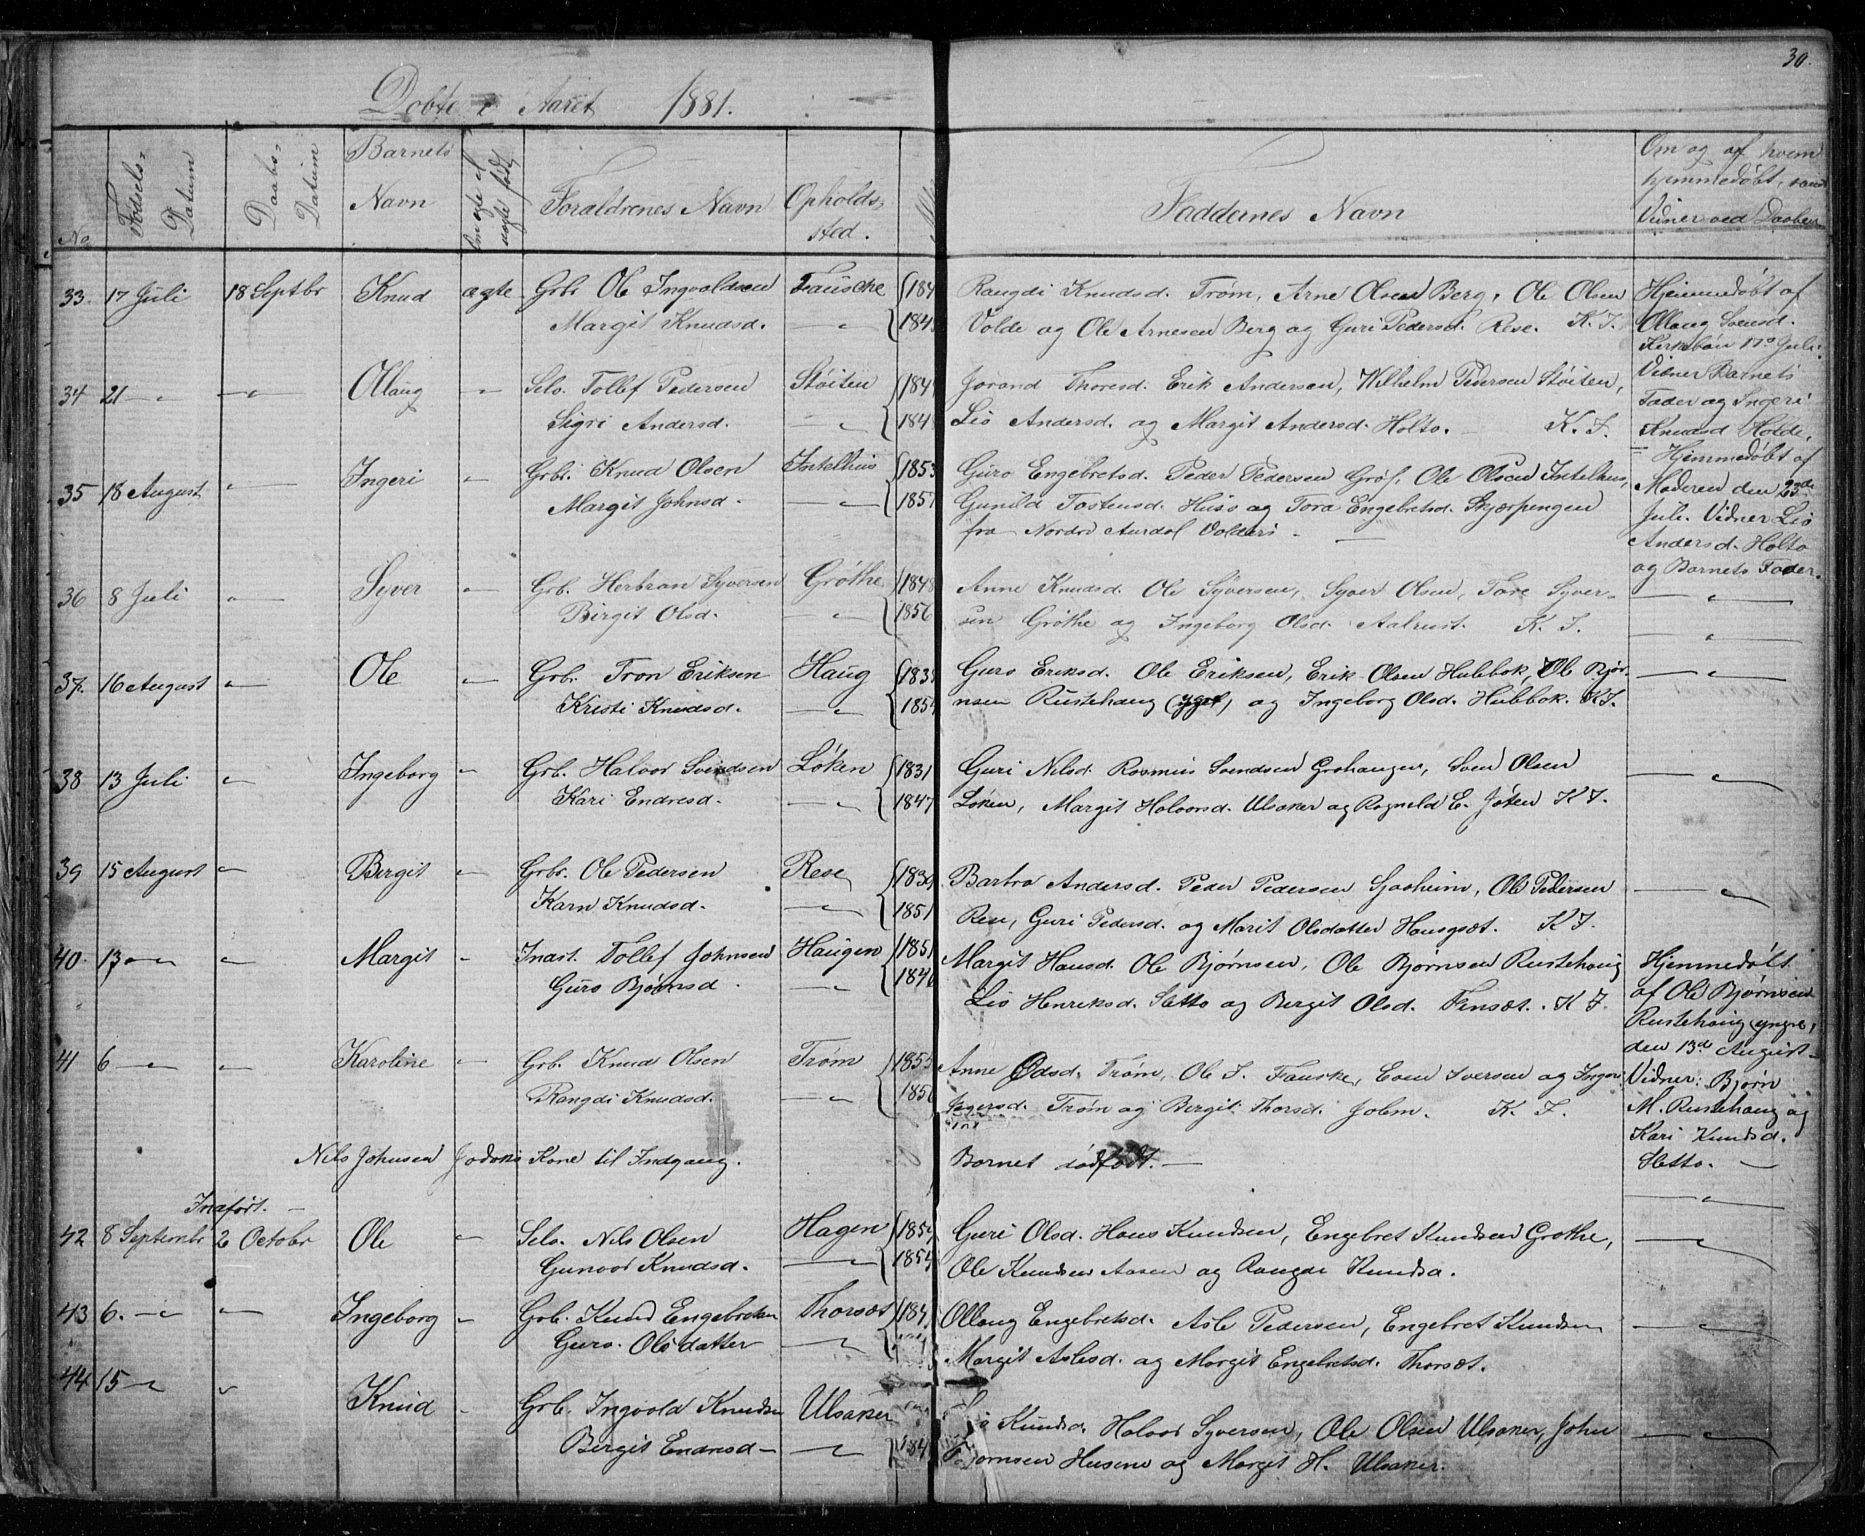 30.
Døbte i Aaret 1881.
No. Fødsels-Datum Daabs-Datum Barnets Navn Om ægte el. uægte født Forældrenes Navn Opholds-sted. Faddernes Navn Om og af hvem hjemmedøbt, samt Vidner ved Daaben
33. 17 Juli 18 Septbr Knud ægte Grbr. Ole Ingvaldsen Fauske Rangdi Knudsd. Trøm, Arne Olsen Berg, Ole Olsen Hjemmedøbt af
Margit Knudsd. — " Volde og Ole Arnesen Berg og Guri Pedersd. Rese. K. I. Ollaug Svensd.
Kirkebøn 17de Juli.
34 21 — " — " — Ollaug " Selv. Tollef Pedersen Støiten Jørand Thoresd. Erik Andersen, Wilhelm Pedersen Støiten, Vidner Barnets
Sigri Andersd. " Liv Andersd. og Margit Andersd. Holto. — K. I. Fader og Ingeri
Knudsd Holde.
35 18 August " — Ingeri " Grbr. Knud Olsen Intelhus 1853 Guro Engebretsd. Peder Pedersen Grøf, Ole Olsen Intelhus, Hjemmedøbt af
Margit Johnsd. — " 1857 Gunild Tostensd. Huso og Tora Engebretsd. Skjærpengen Moderen den 23de
fra Nordre Aurdal Valders. — Juli. Vidner Liv
Andersd. Holto
36 8 Juli " — Syver " Grb. Herbran Syversen Grøthe 1848 Anne Knudsd. Ole Syversen, Syver Olsen, Tore Syver- og Barnets Fader.
Birgit Olsd. — " 1856 sen Grøthe og Ingeborg Olsd. Aalrust. K. I. — " —
37. 16 August " Ole " Grb. Tron Eriksen Haug Guro Eriksd. Ole Eriksen, Erik Olsen Hubbok, Ole Bjør- — " —
Kristi Knudsd. — " nsen Rustehaug (ygst) og Ingeborg Olsd. Hubbok. K I.
38 13 Juli " Ingeborg " Grb. Halvor Svendsen Løken 1831 Guri Nilsd. Rasmus Svendsen Grohaugen, Sven Olsen — " —
Kari Endresd. — " 1847 Løken, Margit Halvorsd. Ulsaker og Ragnild E. Jøten K I.
39 15 August " Birgit " Grbr. Ole Pedersen Rese 1839 Bartro Andersd. Peder Pedersen Sjaaheim, Ole Pedersen — " —
Karn Knudsd. — " 1851 Rese, Guri Pedersd. og Marit Olsdatter Haugsæt. K I.
40. 13 — " " Margit " Inast. Tollef Johnsen Haugen 1851 Margit Hansd. Ole Bjørnsen, Ole Bjørnsen Rustehaug Hjemmedøbt
Guro Bjørnsd. — " Liv Henriksd. Sletto og Bergit Olsd. Finsæt. K I. af Ole Bjørnsen
Rustehaug (yngre)
41 6 — " — " Karoline " Grb. Knud Olsen Trøm 1855 Anne Odsd. Trøm, Ole I. Fauske, Even Iversen og Inger den 13de August
Rangdi Knudsd. — " Iversd. Trøm og Bergit Thorsd. Jolm. K. I. Vidner: Bjørn
M. Rustehaug og
Nils Johnsen Kone til Indgang. Barnet dødfødt. — Kari Knudsd.
Sletto. —
Indført. — — " —
42 8 Septembr 2 Octobr Ole " Selv. Nils Olsen Hagen Guri Olsd. Hans Knudsen, Engebret Knudsen Grøthe, — " —
Gunvor Knudsd. — " 1854 Ole Knudsen Aasen og Rangdi Knudsd.
43 6. — " " Ingeborg " Grb. Knud Engebretsen Thorsæt Ollaug Engebretsd. Asle Pedersen, Engebret Knudsen — " —
Guro Olsdatter — " Margit Aslesd. og Margit Engebretsd. Thorsæt.
44 15 — " " Knud " Grb. Ingvold Knudsen Ulsaker Knudsd. Halvor Syversen, Ole Olsen Ulsaker, John — " —
Bergit Endresd — " Bjørnsen Husemo og Margit H. Ulsaker.